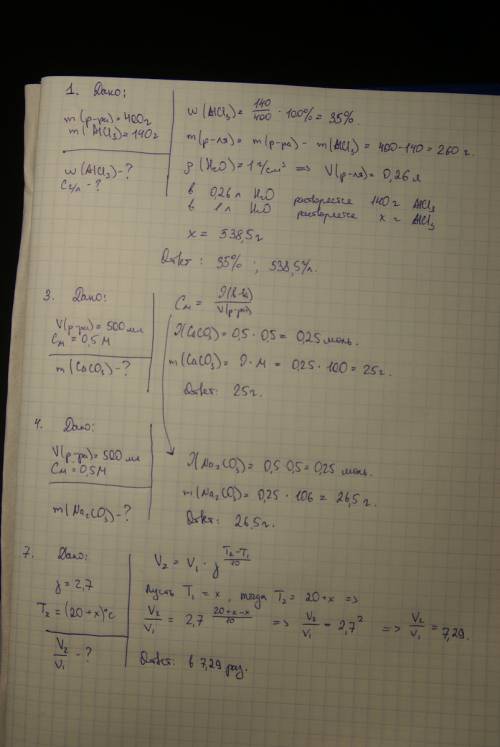 1. Дано:
m(р-ра)=400г
m(AlCl₃)=140г
w(AlCl₃)-?
Cг/л-?
w(AlCl₃)= 140/400 · 100%= 35%
m(р-ля)= m(р-ра) - m(AlCl₃)= 400-140= 260 г.
ρ(H₂O)= 1 г/см³ => V(р-ля)= 0,26 л
в 0,26л H₂O растворяется 140г AlCl₃
в 1л H₂O растворяется x г AlCl₃
x= 538,5г
Ответ: 35% ; 538,5г/л.
3. Дано:
V(р-ра)= 500мл
Cм=0,5М
m(CaCO₃)-?
Cм = ν(в-ва)/V(р-ра)
ν(CaCO₃)= 0,5·0,5= 0,25 моль.
m(CaCO₃)= ν·M = 0,25·100= 25г.
Ответ: 25г.
4. Дано:
V(р-ра)= 500мл
Cм=0,5М
m(Na₂CO₃)-?
ν(Na₂CO₃)= 0,5·0,5= 0,25 моль.
m(Na₂CO₃)= 0,25·106= 26,5г.
Ответ: 26,5г.
7. Дано:
γ=2,7
T₂=(20+x)°C
V₂/V₁ -?
V₂ = V₁ · γ^((T₂-T₁)/10)
Пусть T₁=x, тогда T₂= 20+x =>
V₂/V₁ = 2,7^((20+x-x)/10) => V₂/V₁ = 2,7² => V₂/V₁ = 7,29.
Ответ: в 7,29 раз.